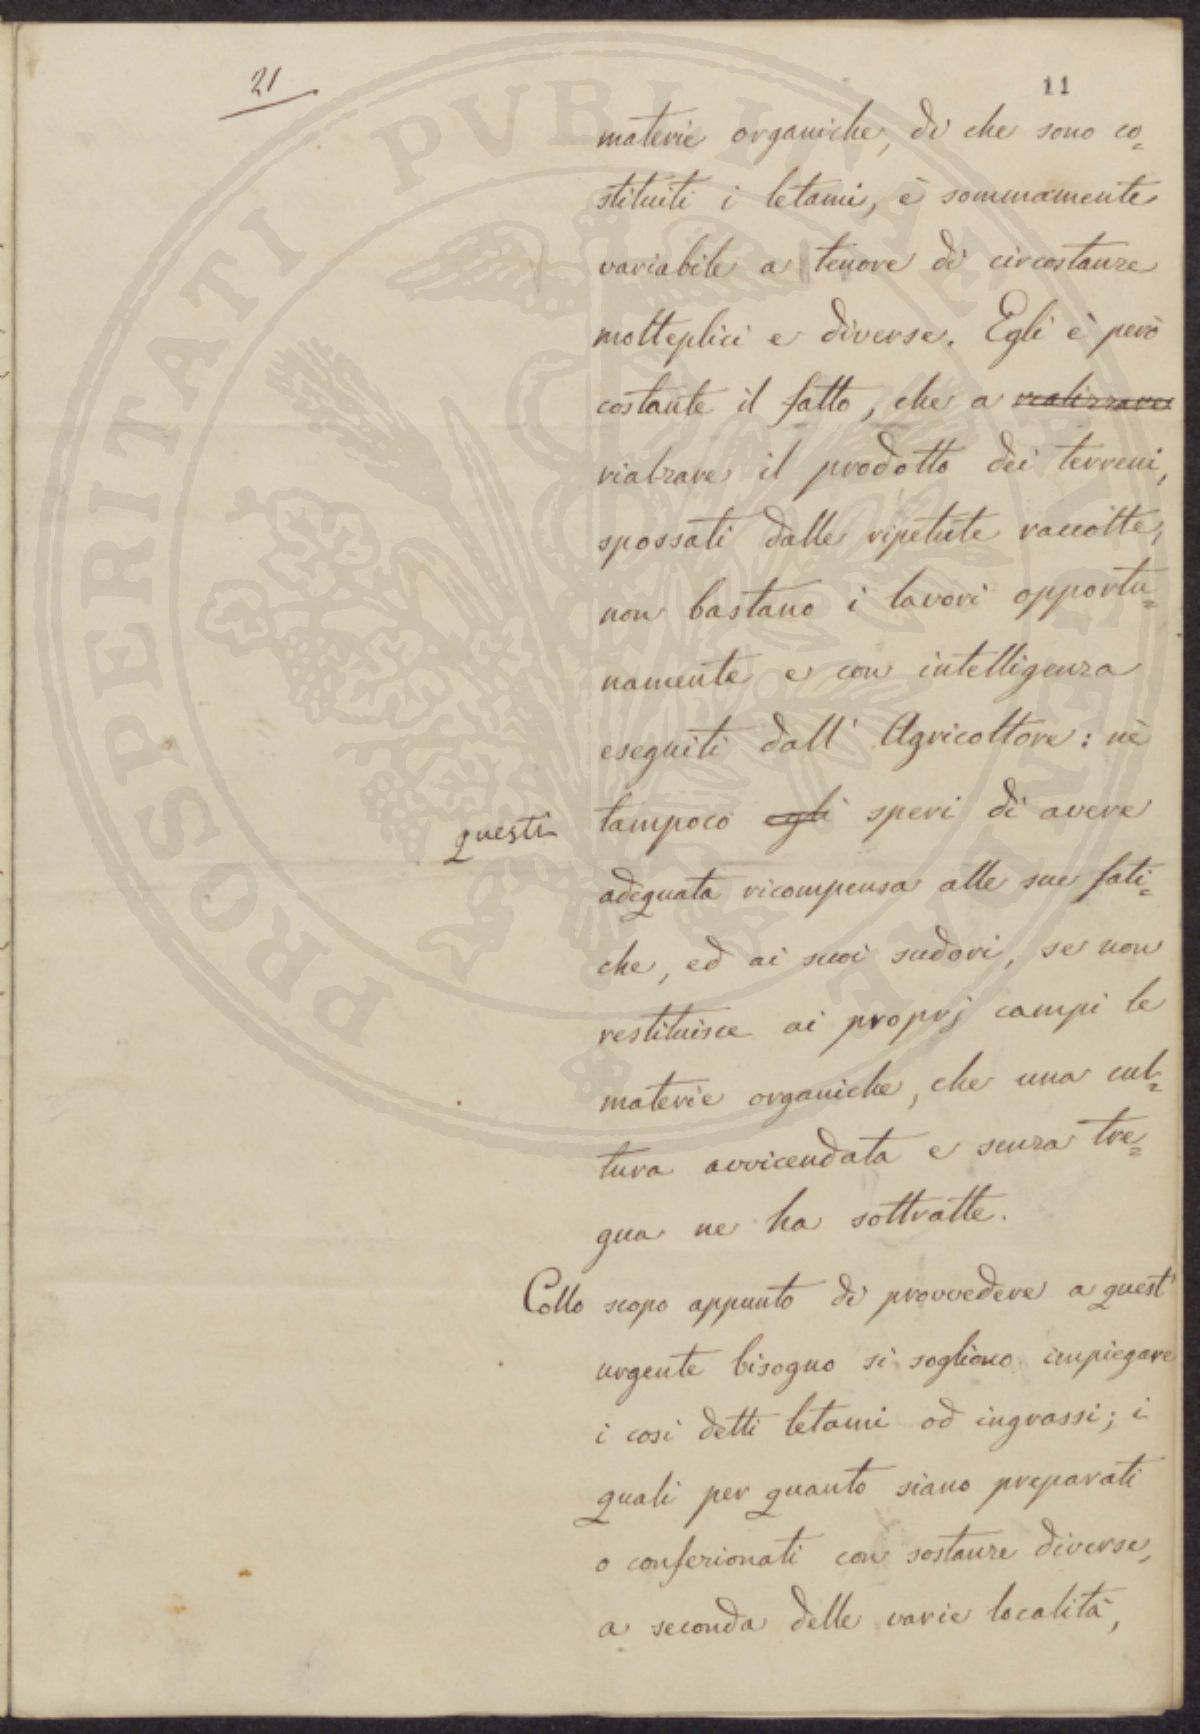 21
11
materie organiche, di che sono co=
stituiti i letami, è sommamente
variabile a tenore di circostanze
molteplici e diverse. Egli è però
costante il fatto, che a realizzare
rialzare il prodotto dei terreni,
spossati dalle ripetute raccolte,
non bastano i lavori opportu=
namente e con intelligenza
eseguiti dall' Agricoltore: nè
questi
tampoco egli speri di avere
adeguata ricompensa alle sue fati=
che, ed ai suoi sudori, se non
restituisce ai proprj campi le
materie organiche, che una cul=
tura avvicendata e senza tre=
gua ne ha sottratte.
Collo scopo appunto di provvedere a quest'
urgente bisogno si sogliono impiegare
i così detti letami od ingrassi; i
quali per quanto siano preparati
o conferionati con sostanze diverse,
a seconda delle varie località,
PROSPERITATI PVBLICAE AVGENDAE